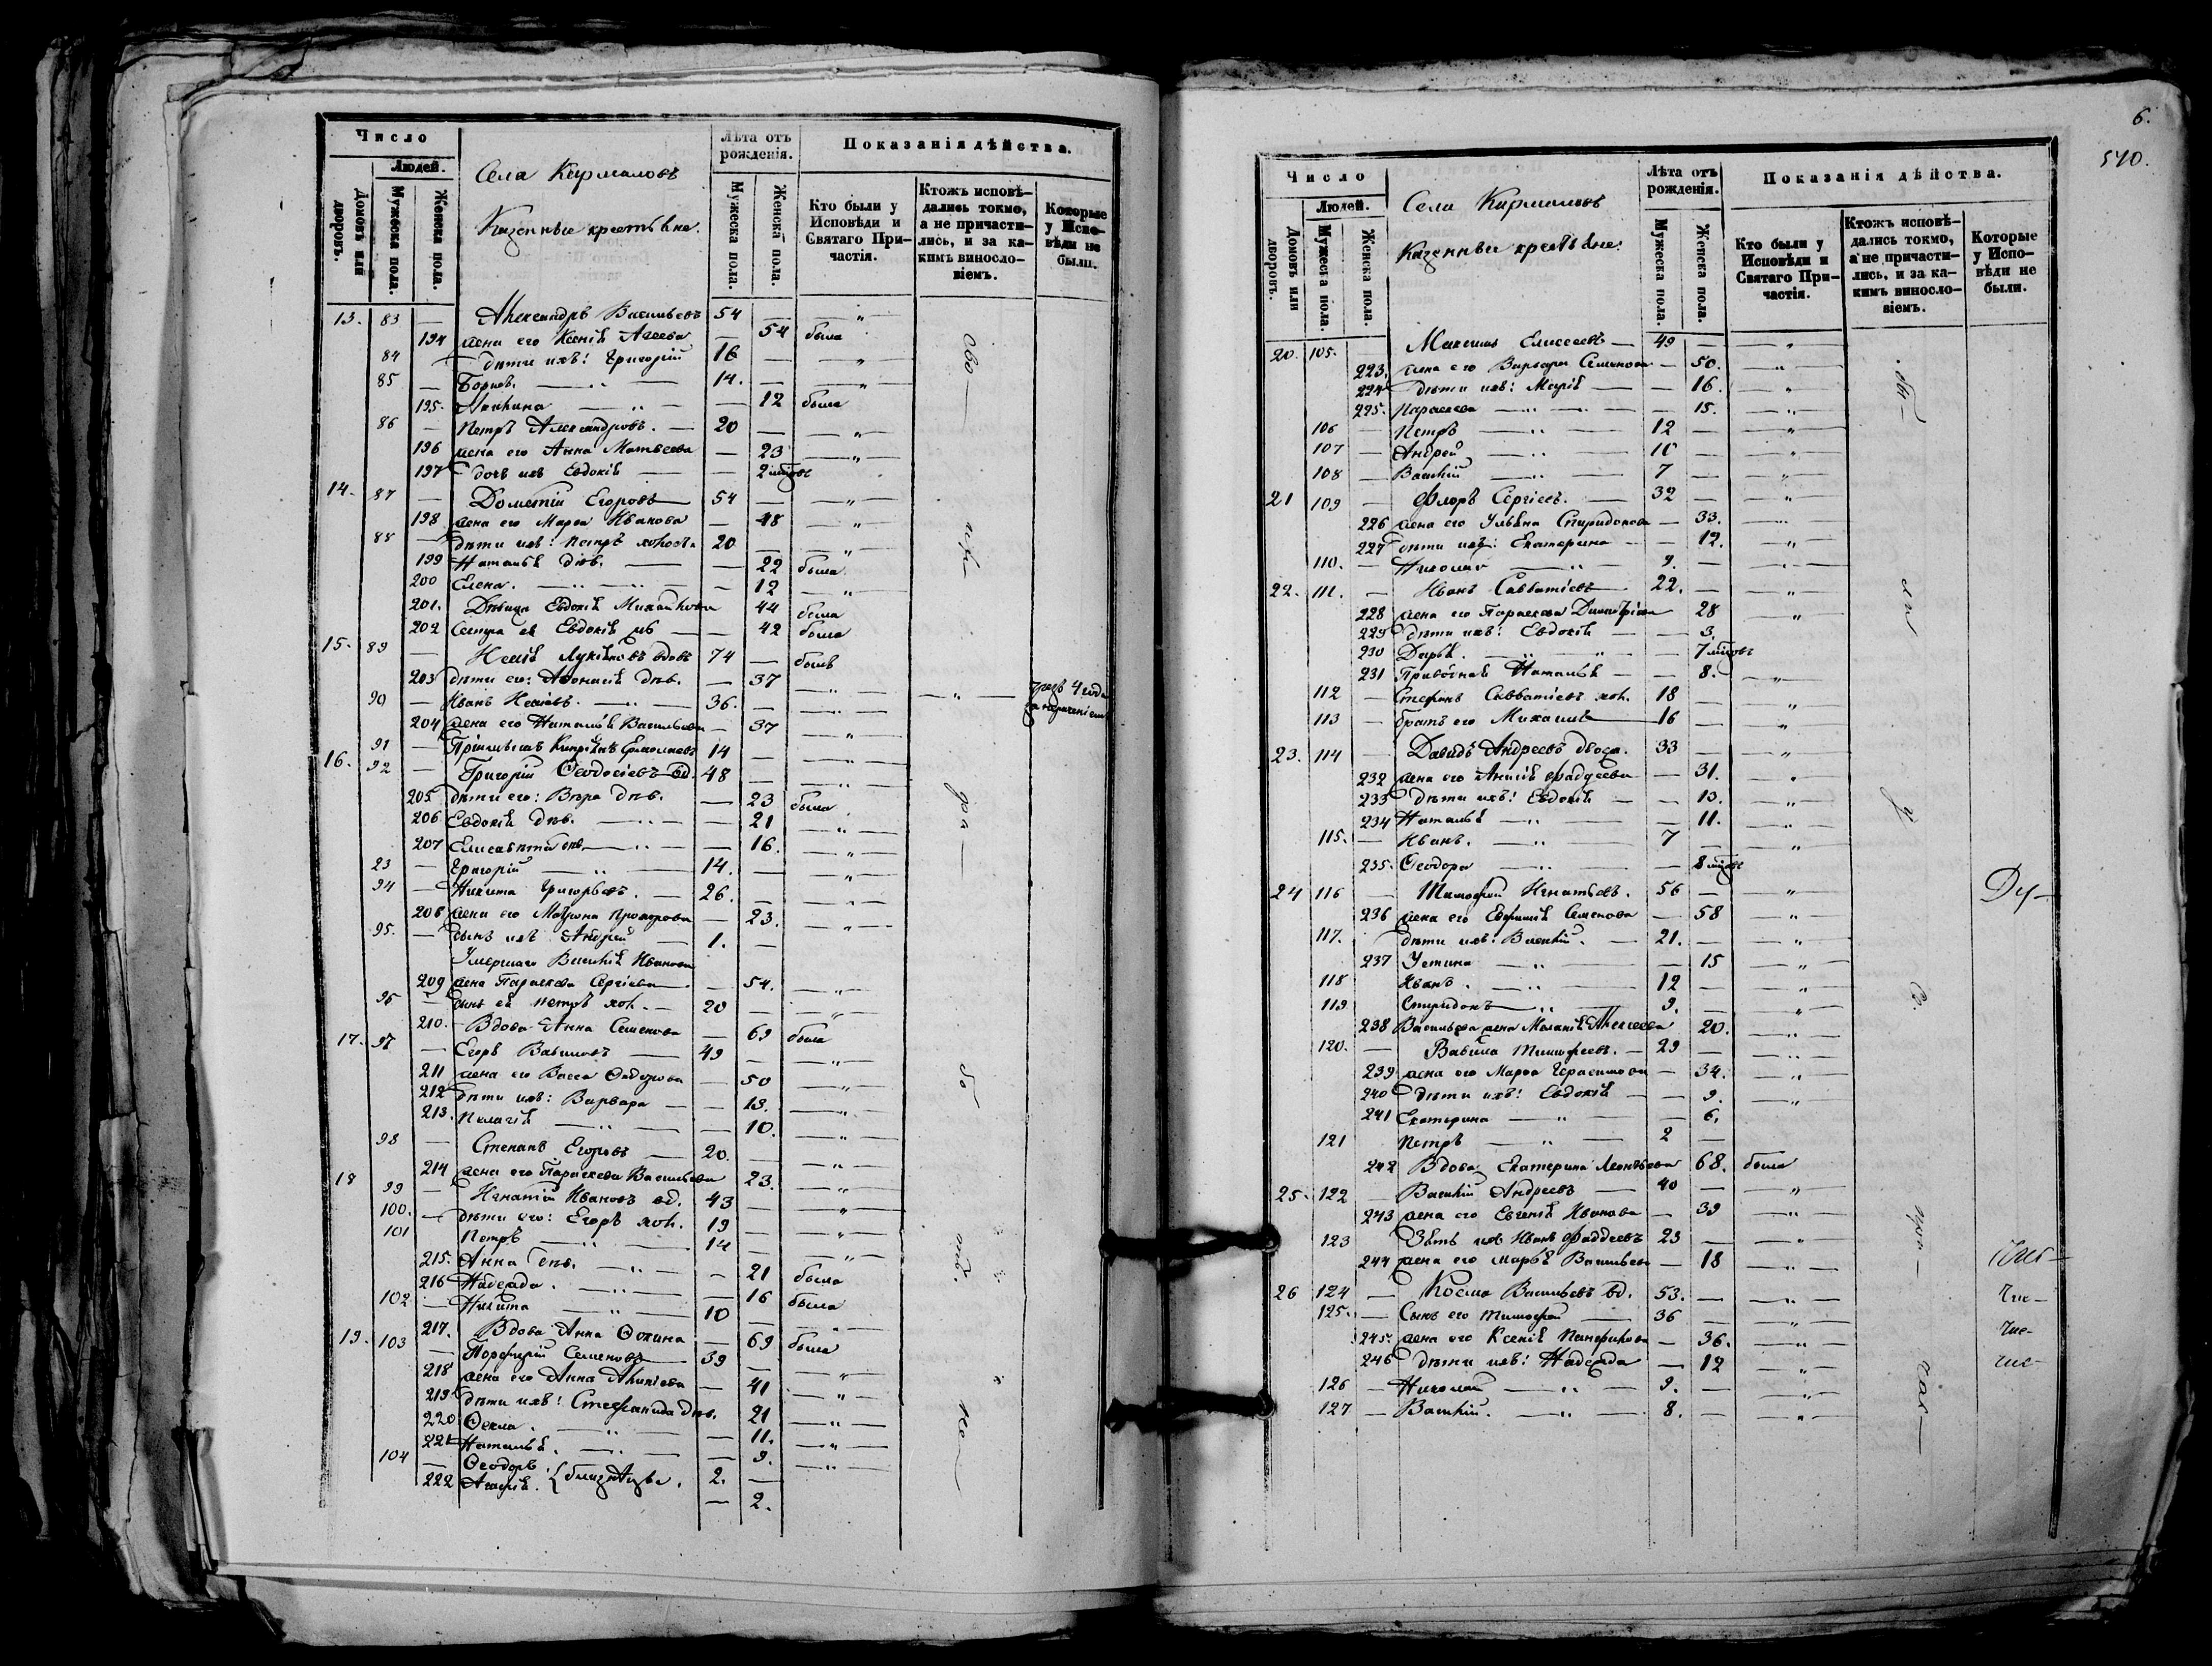 Число
Людей.
Домовъ или дворовъ.
Мужеска пола.
Женска пола.
Села Кармаловъ
Казенные крестьяне.
Лѣта отъ рожденія.
Мужеска пола.
Женска пола.
Показанія дѣйства.
Кто были у Исповѣди и Святаго Причастія.
Ктожъ исповѣдались токмо, а не причастились, и за какимъ винословіемъ.
Которые у Исповѣди не были.
13. 83 — Александръ Васильевъ 54 — „
194 жена его Ксенія Агеева — 54 была
84 — дѣти ихъ: Григорій 16 — „
85 — Борисъ. 14. — „
195. Акилина — 12 была
86 — Петръ Александровъ. 20 — „
196 жена его Анна Матвеева — 23 „
197 дочь ихъ Евдокія — 2
14. 87 — Дометій Егоровъ 54 — „
198 жена его Марѳа Иванова — 48 „
88 — дѣти ихъ: Петръ холостъ 20 — „
199 Наталья дѣв. — 22 была
200 Елена. — 12 „
201. Дѣвица Евдокія Михайлова 44 была
202 Сестра ея Евдокія — 42 была
15. 89 — Лукіяновъ вдовъ 74 — былъ
203 дѣти его: дѣв. — 37 „
90 — Иванъ 36. — „ — „ — 4 года
204 жена его Наталія Васильева — 37 „
91 — 14 — „
16. 92 — Григорій Ѳеодосіевъ вд. 48 — „
205 дѣти его: Вѣра дѣв. — 23 была
206 Евдокія дѣв. — 21 „
207 Елисавета дѣв. — 16. „
93 — Григорій 14. — „
94 — Никита Григорьевъ. 26. — „
208 жена его Матрона — 23. „
95. — сынъ ихъ Андрей 1. —
Умершаго Василія Иванова
209 жена Параскева Сергіева — 54. „
96 — сынъ ея Петръ хол. 20 — „
210. Вдова Анна Семенова — 69 была
17. 97 — Егоръ Вавиловъ 49 — „
211 жена его Васса Ѳедорова — 50 „
212 дѣти ихъ: Варвара — 13. „
213. Пелагія — 10. „
98 — Степанъ Егоровъ 20. — „
214 жена его Параскева Васильева 23. „
18 99 — Игнатій Ивановъ вд. 43 — „
100. — дѣти его: Егоръ хол. 19 — „
101 Петръ 14 — „
215. Анна дѣв. — 21 была
216 Надежда. — 16 была
102 — Никита 10 — „
217. Вдова Анна Ѳокина — 69 была
19. 103 — Порфирій Семеновъ 39 — „
218 жена его Анна — 41 „
219 дѣти ихъ: Стефанида дѣв. 21 „
220 Ѳекла. — 11. „
221 Наталья. — 9. „
104 — Ѳеодоръ 2. —
222 Агафія. {близнецы. — 2.
6.
510.
Число
Людей.
Домовъ или дворовъ.
Мужеска пола.
Женска пола.
Села Кармаловъ
Казенные крестьяне.
Лѣта отъ рожденія.
Мужеска пола.
Женска пола.
Показанія дѣйства.
Кто были у Исповѣди и Святаго Причастія.
Ктожъ исповѣдались токмо, а не причастились, и за какимъ винословіемъ.
Которые у Исповѣди не были.
20. 105. Максимъ Елисеевъ 49 — „
223. жена его Варвара Семенова — 50. „
224 дѣти ихъ: Марія — 16. „
225. Параскева — 15. „
106 — Петръ 12 — „
107 — Андрей 10 — „
108 — Василій 7 — „
21 109 — Флоръ Сергіевъ. 32 — „
226 жена его Ульяна Спиридонова — 33. „
227 дѣти ихъ: Екатерина — 12. „
110. — Николай 9. — „
22. 111. — Иванъ Савватіевъ 22. — „
228 жена его Параскева Димитріева 28 „
229 дѣти ихъ: Евдокія — 3.
230 Дарья. — 7
231 Наталья — 8. „
112 — Стефанъ Савватіевъ хол. 18 — „
113 — братъ его Михаилъ 16 — „
23. 114 — Давидъ Андреевъ 33 — „
232 жена его Анисія Фаддеева — 31. „
233 дѣти ихъ: Евдокія — 13. „
234 Наталья — 11. „
115. — Иванъ. 7 — „
235. Ѳеодора — 8
24 116 — Тимофей Игнатьевъ. 56 — „
236 жена его Евфимія Семенова — 58 „
117. дѣти ихъ: Василій. 21. — „
237 Устина — 15 „
118 Иванъ. 12 — „
119 Спиридонъ 9. — „
238 Васильева жена Меланія Алексеева 20. „
120. — Вавила Тимофеевъ. 29 — „
239 жена его Марѳа Герасимова — 34. „
240 дѣти ихъ: Евдокія — 9. „
241 Екатерина — 6.
121 Петръ 2 —
242 Вдова Екатерина Леонтьева 68. была
25. 122 — Василій Андреевъ 40 — „
243 жена его Евгенія Иванова — 39 „
123 Зять ихъ Иванъ Фаддеевъ 23 — „
244 жена его Марья Васильева — 18 „
26 124 — Косма Васильевъ вд. 53. — „
125. — Сынъ его Тимофей 36 — „
245. жена его Ксенія Панфилова — 36. „
246 дѣти ихъ: Надежда — 12 „
126 — Николай 9. — „
127 — Василій. 8. — „